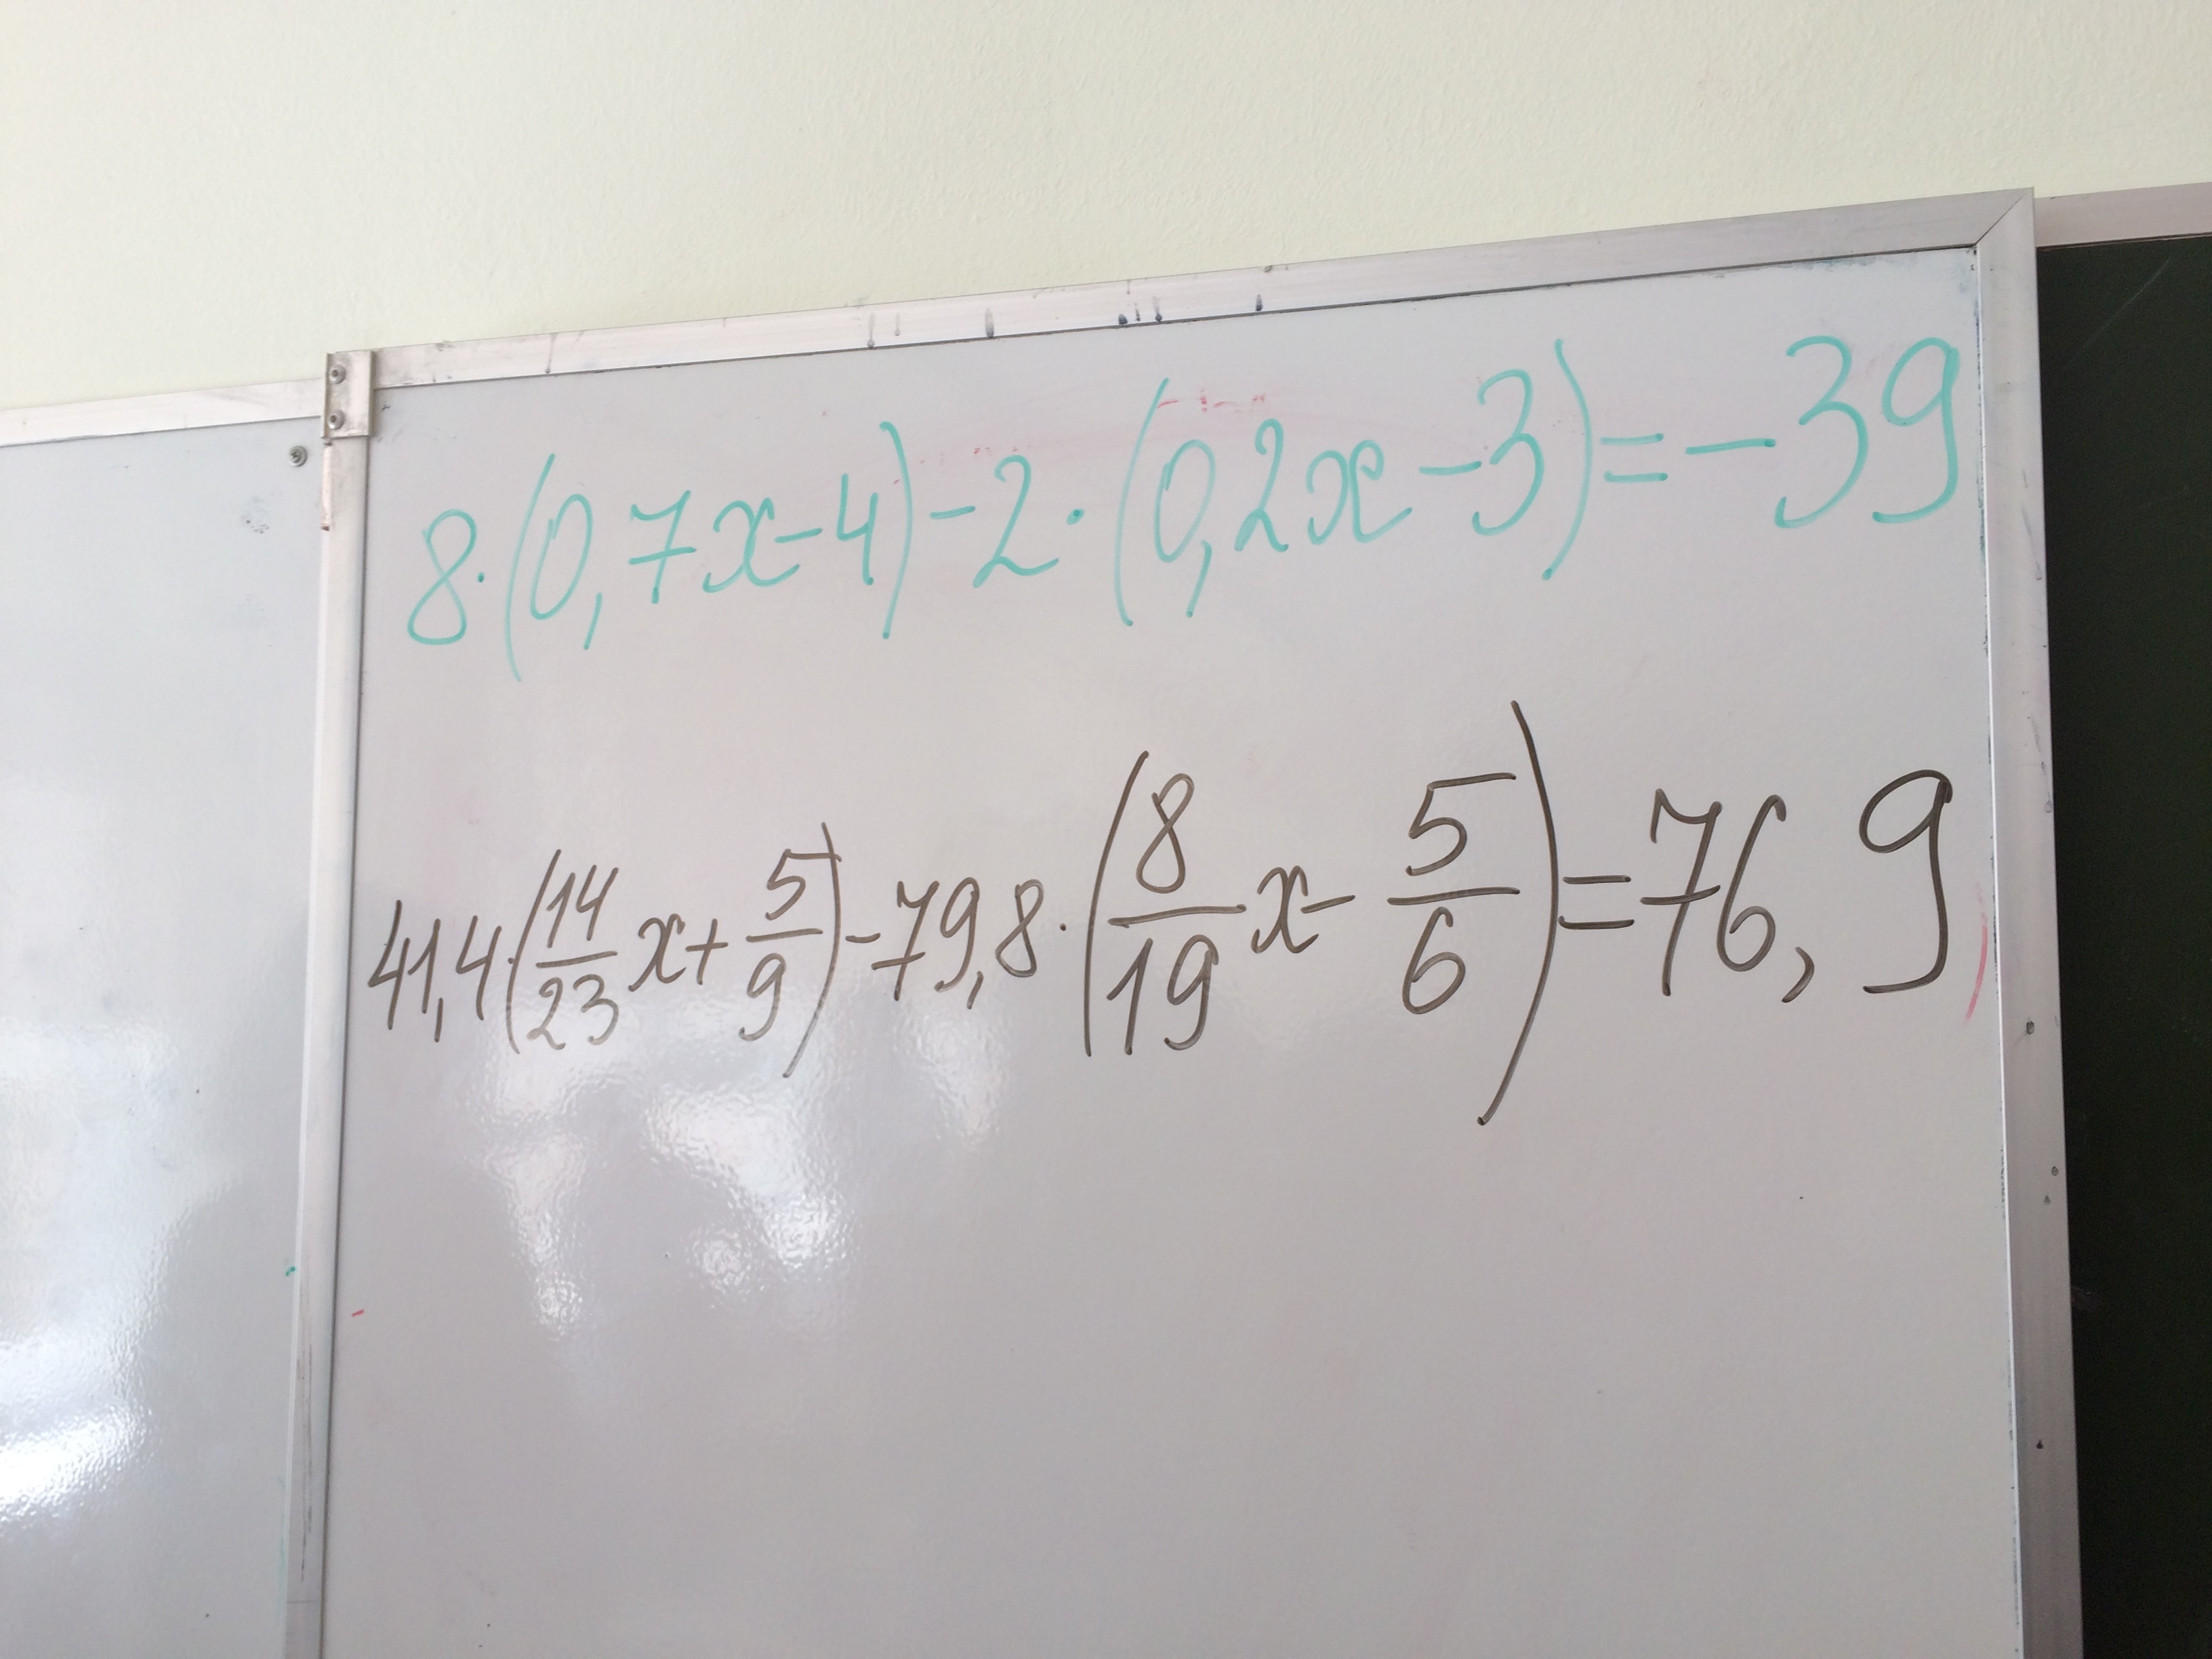 8·(0,7x-4)-2·(0,2x-3)=-39
41,4·(14/23x+5/9)-79,8·(8/19x-5/6)=76,9